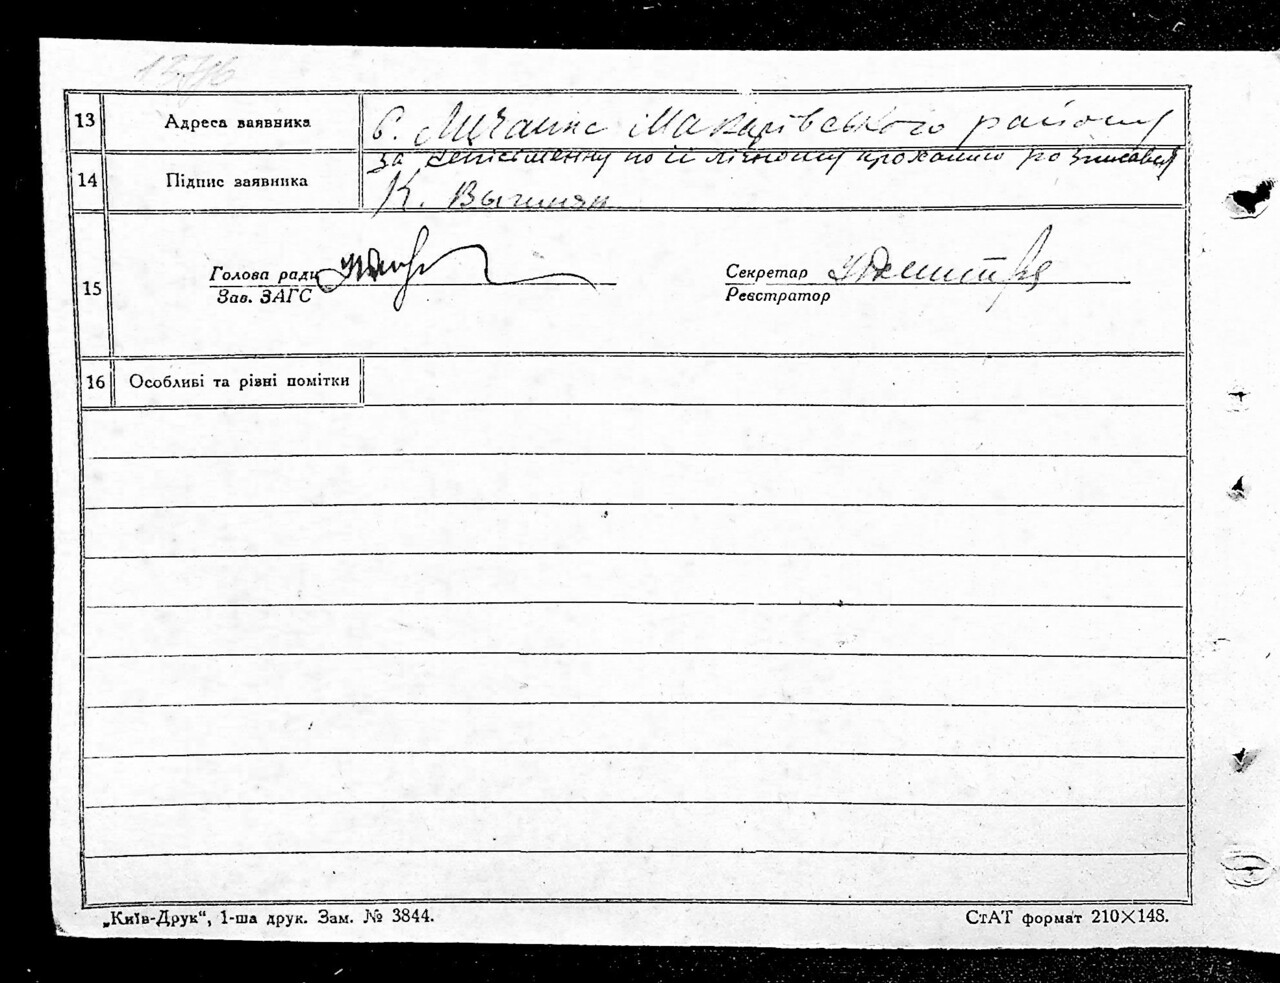 13 Адреса заявника с. Мичина Макарівського району
14 Підпис заявника за неписьменну по її лічному проханню розписався
К.
15 Голова ради Секретар
Зав. ЗАГС Реєстратор
16 Особливі та різні помітки
„Київ-Друк“, 1-ша друк. Зам. № 3844. СтАТ формат 210×148.